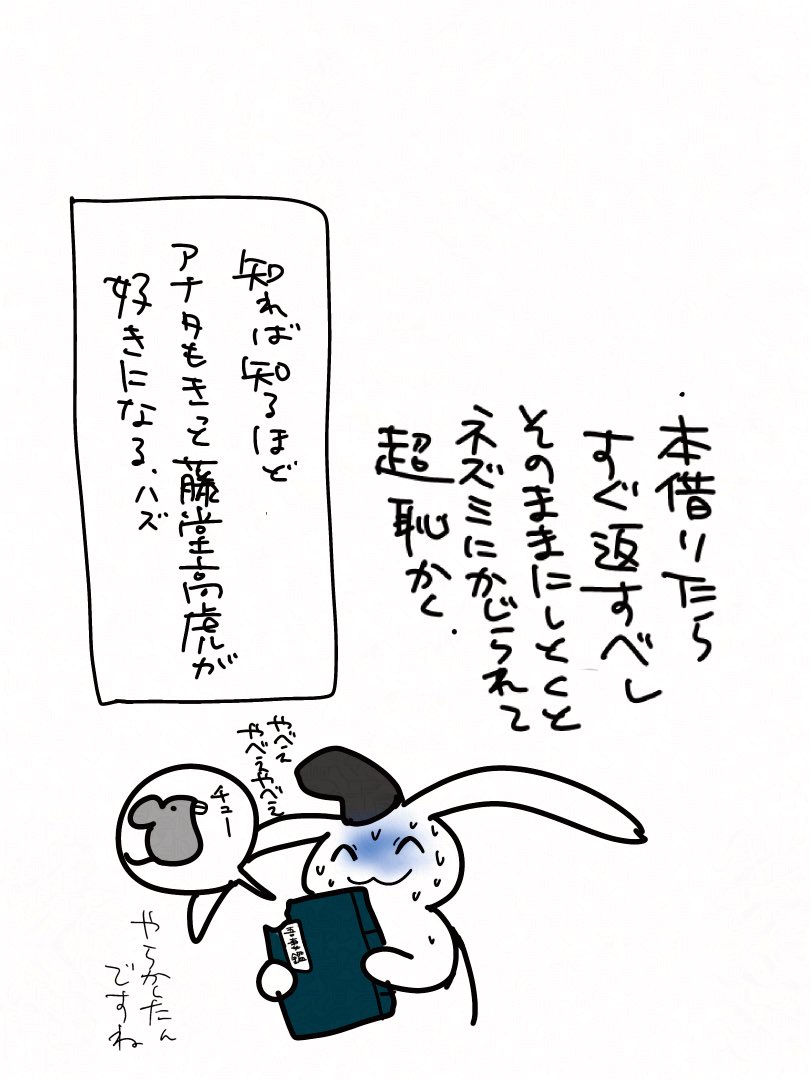 ・本借りたら
すぐ返すべし
そのままにしとくと
ネズミにかじられて
超恥かく.
知れば知るほど
アナタもきっと藤堂高虎が
好きになる、ハズ
やべえ
やべえやべえ
チュー
やらかしたん
ですね